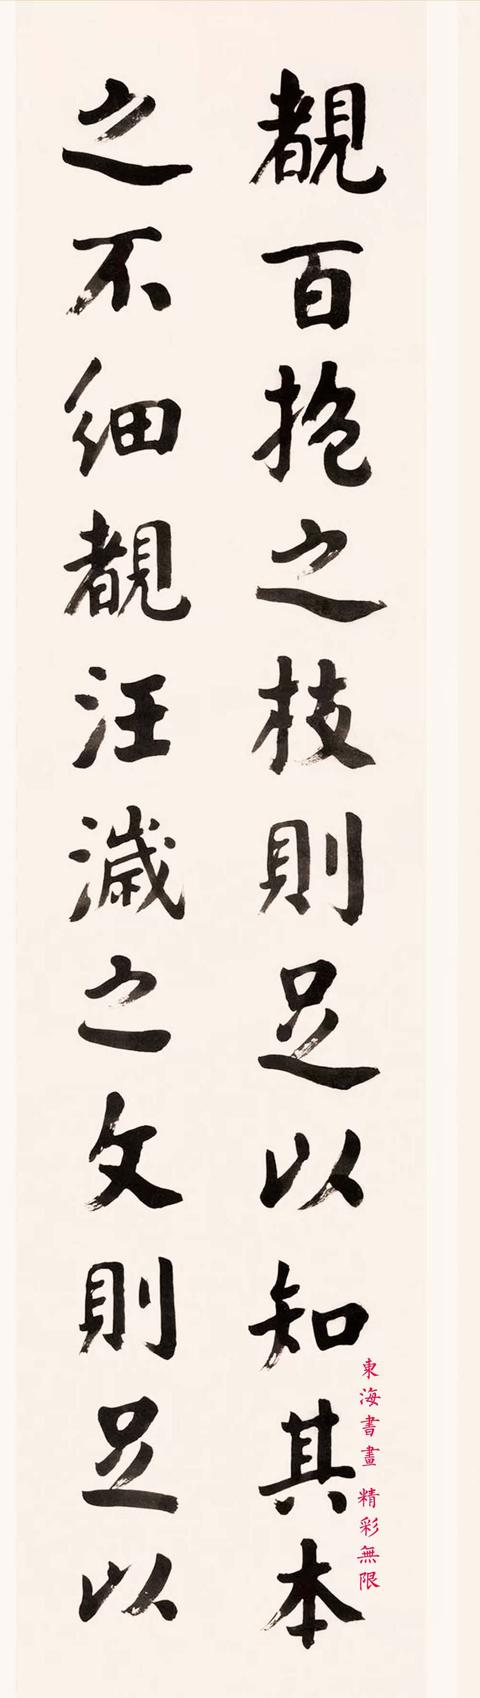 覩百抱之枝則足以知其本
之不細覩汪濊之文則足以
東海書畫 精彩無限